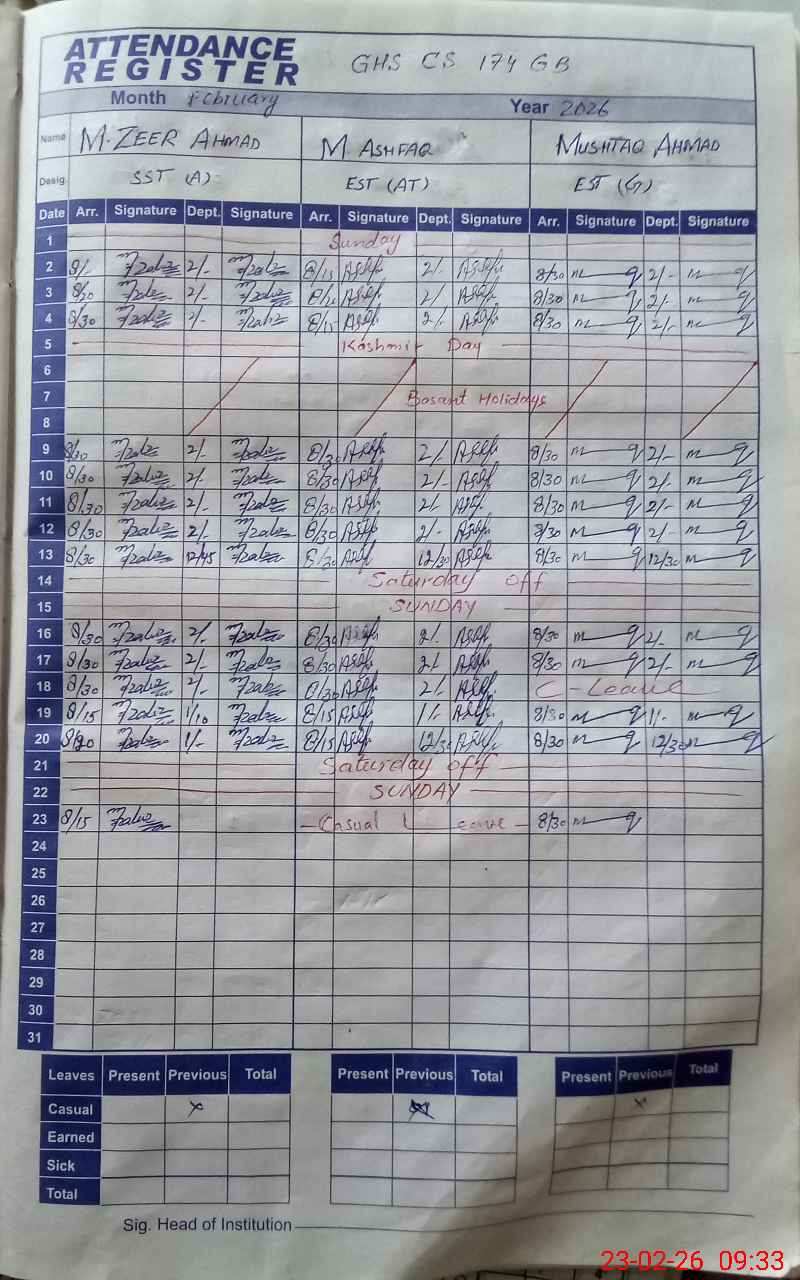 ATTENDANCE REGISTER GHS CS 174 GB
Month February Year 2026
Name M. ZEER AHMAD M. ASHFAQ MUSHTAQ AHMAD
Desig. SST (A) EST (AT) EST (G)
Date Arr. Signature Dept. Signature Arr. Signature Dept. Signature Arr. Signature Dept. Signature
1 Sunday
2 2/- 8/15 2/- 8/30 2/-
3 2/- 2/ 8/30 2/-
4 8/30 2/- 8/15 2/- 8/30 2/-
5 Kashmir Day
6
7 Basant Holidays
8
9 8/30 2/- 8/30 2/- 8/30 2/-
10 8/30 2/- 8/30 2/- 8/30 2/-
11 8/30 2/- 8/30 2/- 8/30 2/-
12 8/30 2/- 8/30 2/- 8/30 2/-
13 8/30 12/45 8/30 12/30 8/30 12/30
14 Saturday off
15 SUNDAY
16 8/30 2/- 8/30 2/- 8/30 2/-
17 8/30 2/- 8/30 2/- 8/30 2/-
18 8/30 2/- 8/30 2/- C-Leave
19 8/15 1/10 8/15 1/- 8/30 1/-
20 1/- 8/15 12/30 8/30 12/30
21 Saturday off
22 SUNDAY
23 8/15 Casual Leave 8/30
24
25
26
27
28
29
30
31
Leaves Present Previous Total Present Previous Total Present Previous Total
Casual x x
Earned
Sick
Total
Sig. Head of Institution
23-02-26 09:33